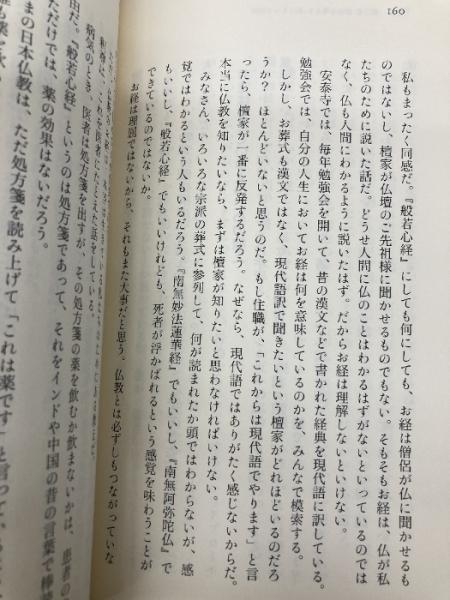 160
私もまったく同感だ。『般若心経』にしても何にしても、お経は僧侶が仏に聞かせるも
のではないし、檀家が仏壇のご先祖様に聞かせるものでもない。そもそもお経は、仏が私
たちのために説いた話だ。どうせ人間に仏のことはわかるはずがないといっているのでは
なく、仏も人間にわかるように説いたはず。だからお経は理解しないといけない。
安泰寺では、毎年勉強会を開いて、昔の漢文などで書かれた経典を現代語に訳している。
勉強会では、自分の人生においてお経は何を意味しているのかを、みんなで模索する。
しかし、お葬式も漢文ではなく、現代語訳で聞きたいという檀家がどれほどいるのだろ
うか？ ほとんどいないと思うのだ。もし住職が、「これからは現代語でやります」と言
ったら、檀家が一番に反発するだろう。なぜなら、現代語ではありがたく感じないからだ。
本当に仏教を知りたいなら、まずは檀家が知りたいと思わなければいけない。
みなさん、いろいろな宗派の葬式に参列して、何が読まれたか頭ではわからないが、感
覚ではわかるという人もいるだろう。『南無妙法蓮華経』でもいいし、『南無阿弥陀仏』で
もいいし、『般若心経』でもいいけれども、死者が浮かばれるという感覚を味わうことが
できているのではないか。
お経は理屈ではないから、それもまた大事だと思う。仏教とは必ずしもつながっていな
病気のとき、医者は処方箋を出すが、その処方箋の薬を飲むか飲まないかは、患者の
だ。『般若心経』というのは処方箋であって、それをインドや中国の昔の言葉で棒読
ただけでは、薬の効果はないだろう。
まの日本仏教は、ただ処方箋を読み上げて「これは薬です」と言って